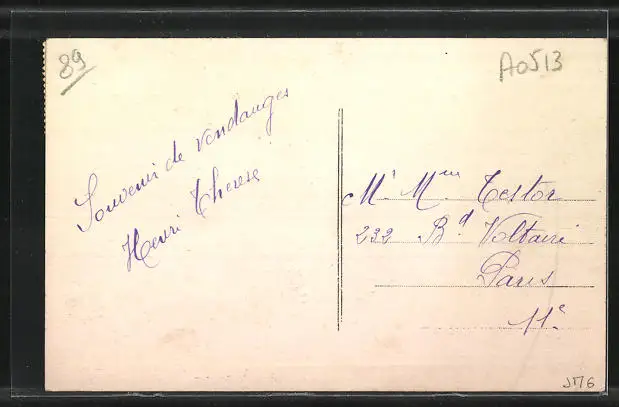 89
A0513
Souvenir de vendanges
Henri Therese
Mr Mme Testor
232 Bd Voltaire
Paris
11e